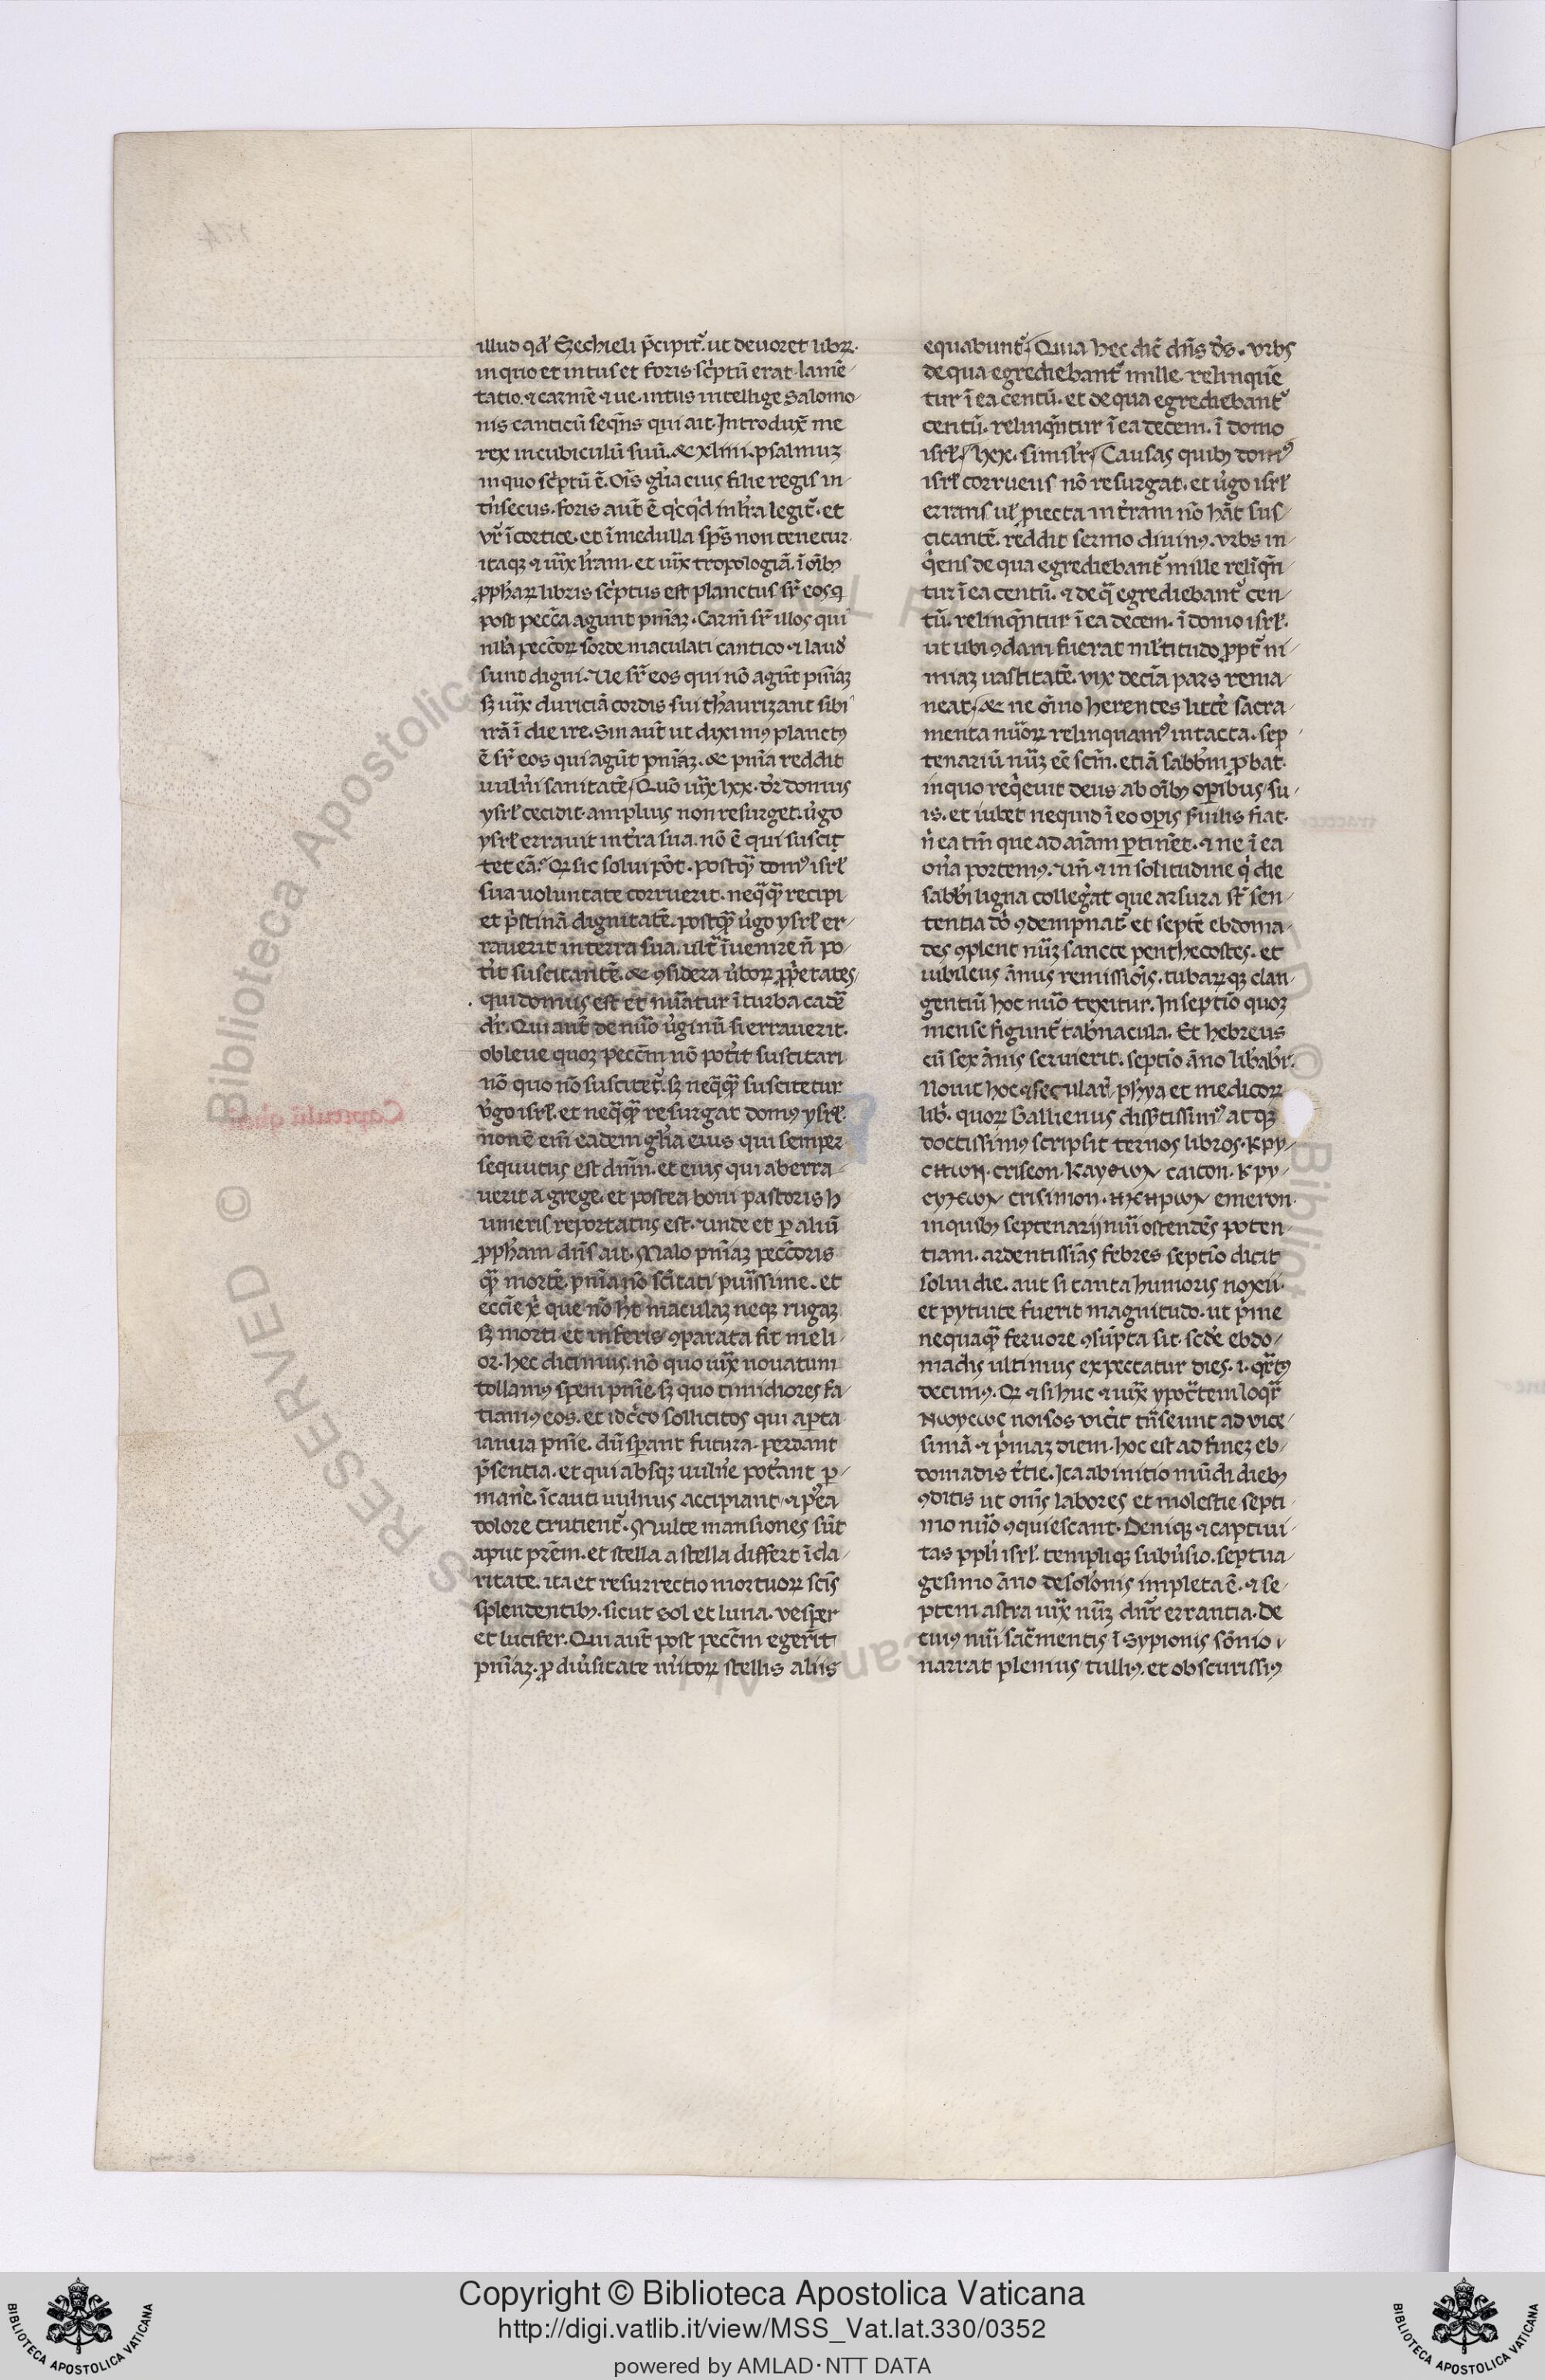 illud qd́ Ezechieli p̄cipit᷑. ut deuoret libꝝ.
in quo et intus et foris sc̓ptū erat. lamē/
tatio. ⁊ carmē ⁊ ue. intus intellige Salomo/
nis canticū seq̄ns qui ait. Introdux̄ me
rex in cubiculū suū. & xliiii. psalmuꝫ
in quo sc̓ptū ē. Oīs gl̄ia eius filie regis in/
tṙīsecus. foris aut̄ ē q̇cq̇d in l̄ra legit᷑. et
ur̄ ī cortice. et ī medulla sp̄s non tenetur.
itaqꝫ ⁊ iux̄ l̄ram. et iux̄ tropologiā. ī oīb;
ꝓph̄aꝝ libris sc̓ptus est planctus sr̄ eos q
post pecc̄a agunt pn̄iaꝫ. Carm̄ sr̄ illos qui
nlla pecc̄oꝝ sorde maculati cantico ⁊ laud̓
sunt digni. Ue sr̄ eos qui nō agūt pn̄iaꝫ
sꝫ iux̄ duriciā cordis sui th̓aurizant sibi
irā ī die ire. Sin aut̄ ut diximꝰ planctꝰ
ē sr̄ eos qui agūt pn̄iaꝫ. & pn̄ia reddit
uuln̓i sanitatē. Quō iux̄ lxx. dr̄ domus
ysrl̓ cecidit. amplius non resurget. ūgo
ysrl̓ errauit in t̄ra sua. nō ē qui suscit
tet eā. Qꝛ sic solui pōt. postq̄ domꝰ isrl̓
sua uoluntate corruerit. neq̄q̄ recipi
et p̓stinā dignitatē. postq̄ ūgo ysrl̓ er/
rauerit in terra sua. ult᷑ īuenire ñ po/
t̓it suscitantē. & ꝯsidera ūboꝝ ꝓp̓etates/
qui domus est et nūatur ī turba cadē
dr̄. Qui aut̄ de nūo ūginū si errauerit.
obleue quoꝫ pecc̄m nō pot̓it suscitari
nō quo nō suscitet᷑. sꝫ neq̄q̄ suscitetur
ūgo isrl̓. et neq̄q̄ resurgat domꝰ ysrl̓.
non ē eni᷑ eadem gl̄ia eius qui semper
sequutus est dn̄m. et eius qui aberra/
uerit a grege. et postea boni pastoris h
umeris reportatus est. unde et ꝑ aliū
ꝓph̄am dn̄s ait. Malo pn̄iaꝫ pecc̄oris
q̄ mortē. pn̄ia nō sc̄itati puissime. et
eccl̄ie xp̄ que nō h̄t maculaꝫ neqꝫ rugaꝫ
sꝫ morti et inferis ꝯparata fit meli/
or. hec dicimus. nō quo iux̄ nouatum
tollamꝰ spem pn̄ie. sꝫ quo timidiores fa/
tiamꝰ eos. et idc̓co sollicitos qui aꝑta
ianua pn̄ie. dū sꝑant futura. perdant
p̄sentia. et qui absqꝫ uuln̓e pot̓ant ꝑ/
man̓e. īcauti uulnus accipiant. ⁊ p̓ea
dolore crutient᷑. Multe mansiones sūt
aput pr̄em. et stella a stella differt ī cla/
ritate. ita et resurrectio mortuoꝝ sc̄is
splendentib;. sicut sol et luna. vesper
et lucifer. Qui aut̄ post pecc̄m eger̄it
pn̄iaꝫ. ꝓ diu̓sitate m̓itoꝝ stellis aliis
equabunt᷑. Quia hec dic̄ dn̄s ds̄. urbs
de qua egrediebant᷑ mille. relinquē
tur ī ea centū. et de qua egrediebant᷑
centū. relinq̄ntur ī ea decem. ī domo
isrl̓. lxx. simil̓r. Causas quib; domꝰ
isrl̓ corruens nō resurgat. et ūgo isrl̓
errans ul̓ ꝓiecta in t̄ram nō h̄at sus/
citantē. reddit sermo diuinꝰ. urbs in/
q̇ens de qua egrediebant᷑ mille reliq̄n
tur ī ea centū. ⁊ de q̄ egrediebant᷑ cen/
tū. relinq̄ntur ī ea decem. ī domo isrl̓.
ut ubi ꝯdam fuerat ml̓titudo ꝓpt᷑ ni/
miaꝫ uastitatē. vix decīa pars rema/
neat. & ne oīno herentes litt̓e sacra/
menta nūoꝝ relinquamꝰ intacta. sep/
tenariū nūꝫ eē scm̄. etiā sabb̓m ꝓbat.
in quo req̇euit deus ab oīb; oꝑibus su/
is. et iubet ne quid ī eo oꝑis s̓uilis fiat.
ñ ea tm̄ que ad aīam ꝑtinēt. ⁊ ne ī ea
on̓a portemꝰ. un̄ ⁊ in solitudine q̇ die
sabb̓i ligna colleg̓at que arsura st̄ sen/
tentia dō ꝯdempnat᷑ et septē ebdoma/
des ꝯplent nūꝫ sancte penthecostes. et
iubileus ānus remissiōis. tubaꝝqꝫ clan/
gentiū hoc nūo texitur. In septīo quoꝫ
mense figunt᷑ tab̓nacula. Et hebreus
cū sex ānis seruierit. septīo āno lib̓ab̓r.
Nouit hoc ⁊ secular̓ phya et medicoꝝ
lib̓. quoꝝ Gallienus diss̓tissimꝰ atqꝫ
doctissimꝰ scripsit ternos libros. κρυ/
cηωn. criseon. καυσωn caicon. κρυ/
cyнεωn crisimon. нεнρωn emeron.
in quib; septenarij nūi ostendēs poten/
tiam. ardentissīas febres septīo dicit
solui die. aut si tanta humoris noxii.
et pytuite fuerit magnitudo. ut p̓me
nequaq̄ feruore ꝯsūpta sit. scd̓e ebdo/
madis ultimus expectatur dies. i. qr̄tꝰ
decimꝰ. Qꝛ ⁊ si huc ⁊ iux̄ ypoc̄tem loq̄r
Nωycωc noisos vic̓it tn̄seunt ad vice/
simā ⁊ p̓maꝫ diem. hoc est ad fineꝫ eb/
domadis t̓tie. Ita ab initio mūdi dieb;
ꝯditis ut om̄s labores et molestie septi/
mo nūo ꝯquiescant. Deniqꝫ ⁊ captiui/
tas ppl̓i isrl̓. templiqꝫ subu̓sio. septua/
gesimo āno desol̓onis impleta ē. ⁊ se/
ptem astra iux̄ nūꝫ dn̄r errantia. De
cuiꝰ nūi sac̄mentis ī Sypionis sōnio
narrat plenius tulliꝰ. et obscurissiꝰ
Copyright © Biblioteca Apostolica Vaticana
http://digi.vatlib.it/view/MSS_Vat.lat.330/0352
powered by AMLAD·NTT DATA